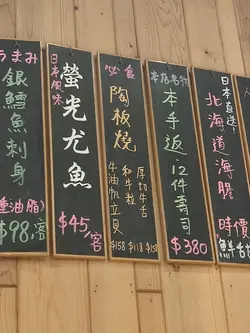 うまみ
銀鱈魚刺身
(重油脂)
$98/客
日本風味
螢光尤魚
$45/客
必食
陶板燒
厚切牛舌
和牛粒
牛油帆立貝
$158 $118 $158
本店名物
本手返・12件壽司
$380
日本直送!
北海道海膽
時價